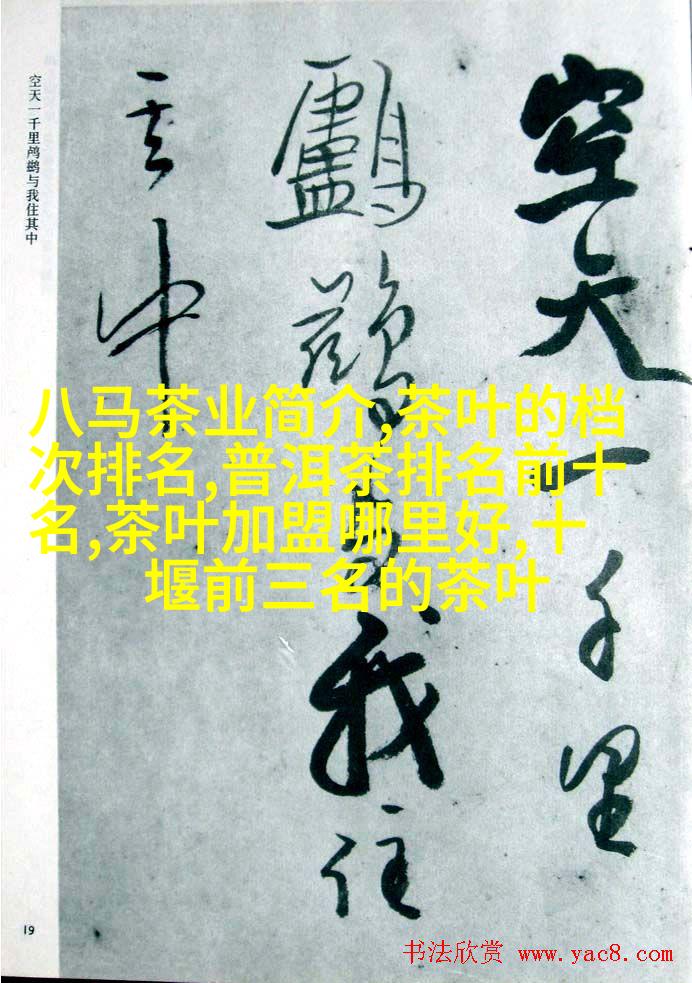 空天一千里
鸕鷀与我住
其中
空天一千里鸬鹚与我住其中
八马茶业简介,茶叶的档
次排名,普洱茶排名前十
名,茶叶加盟哪里好,十
堰前三名的茶叶
19
书法欣赏 www.yac8.com